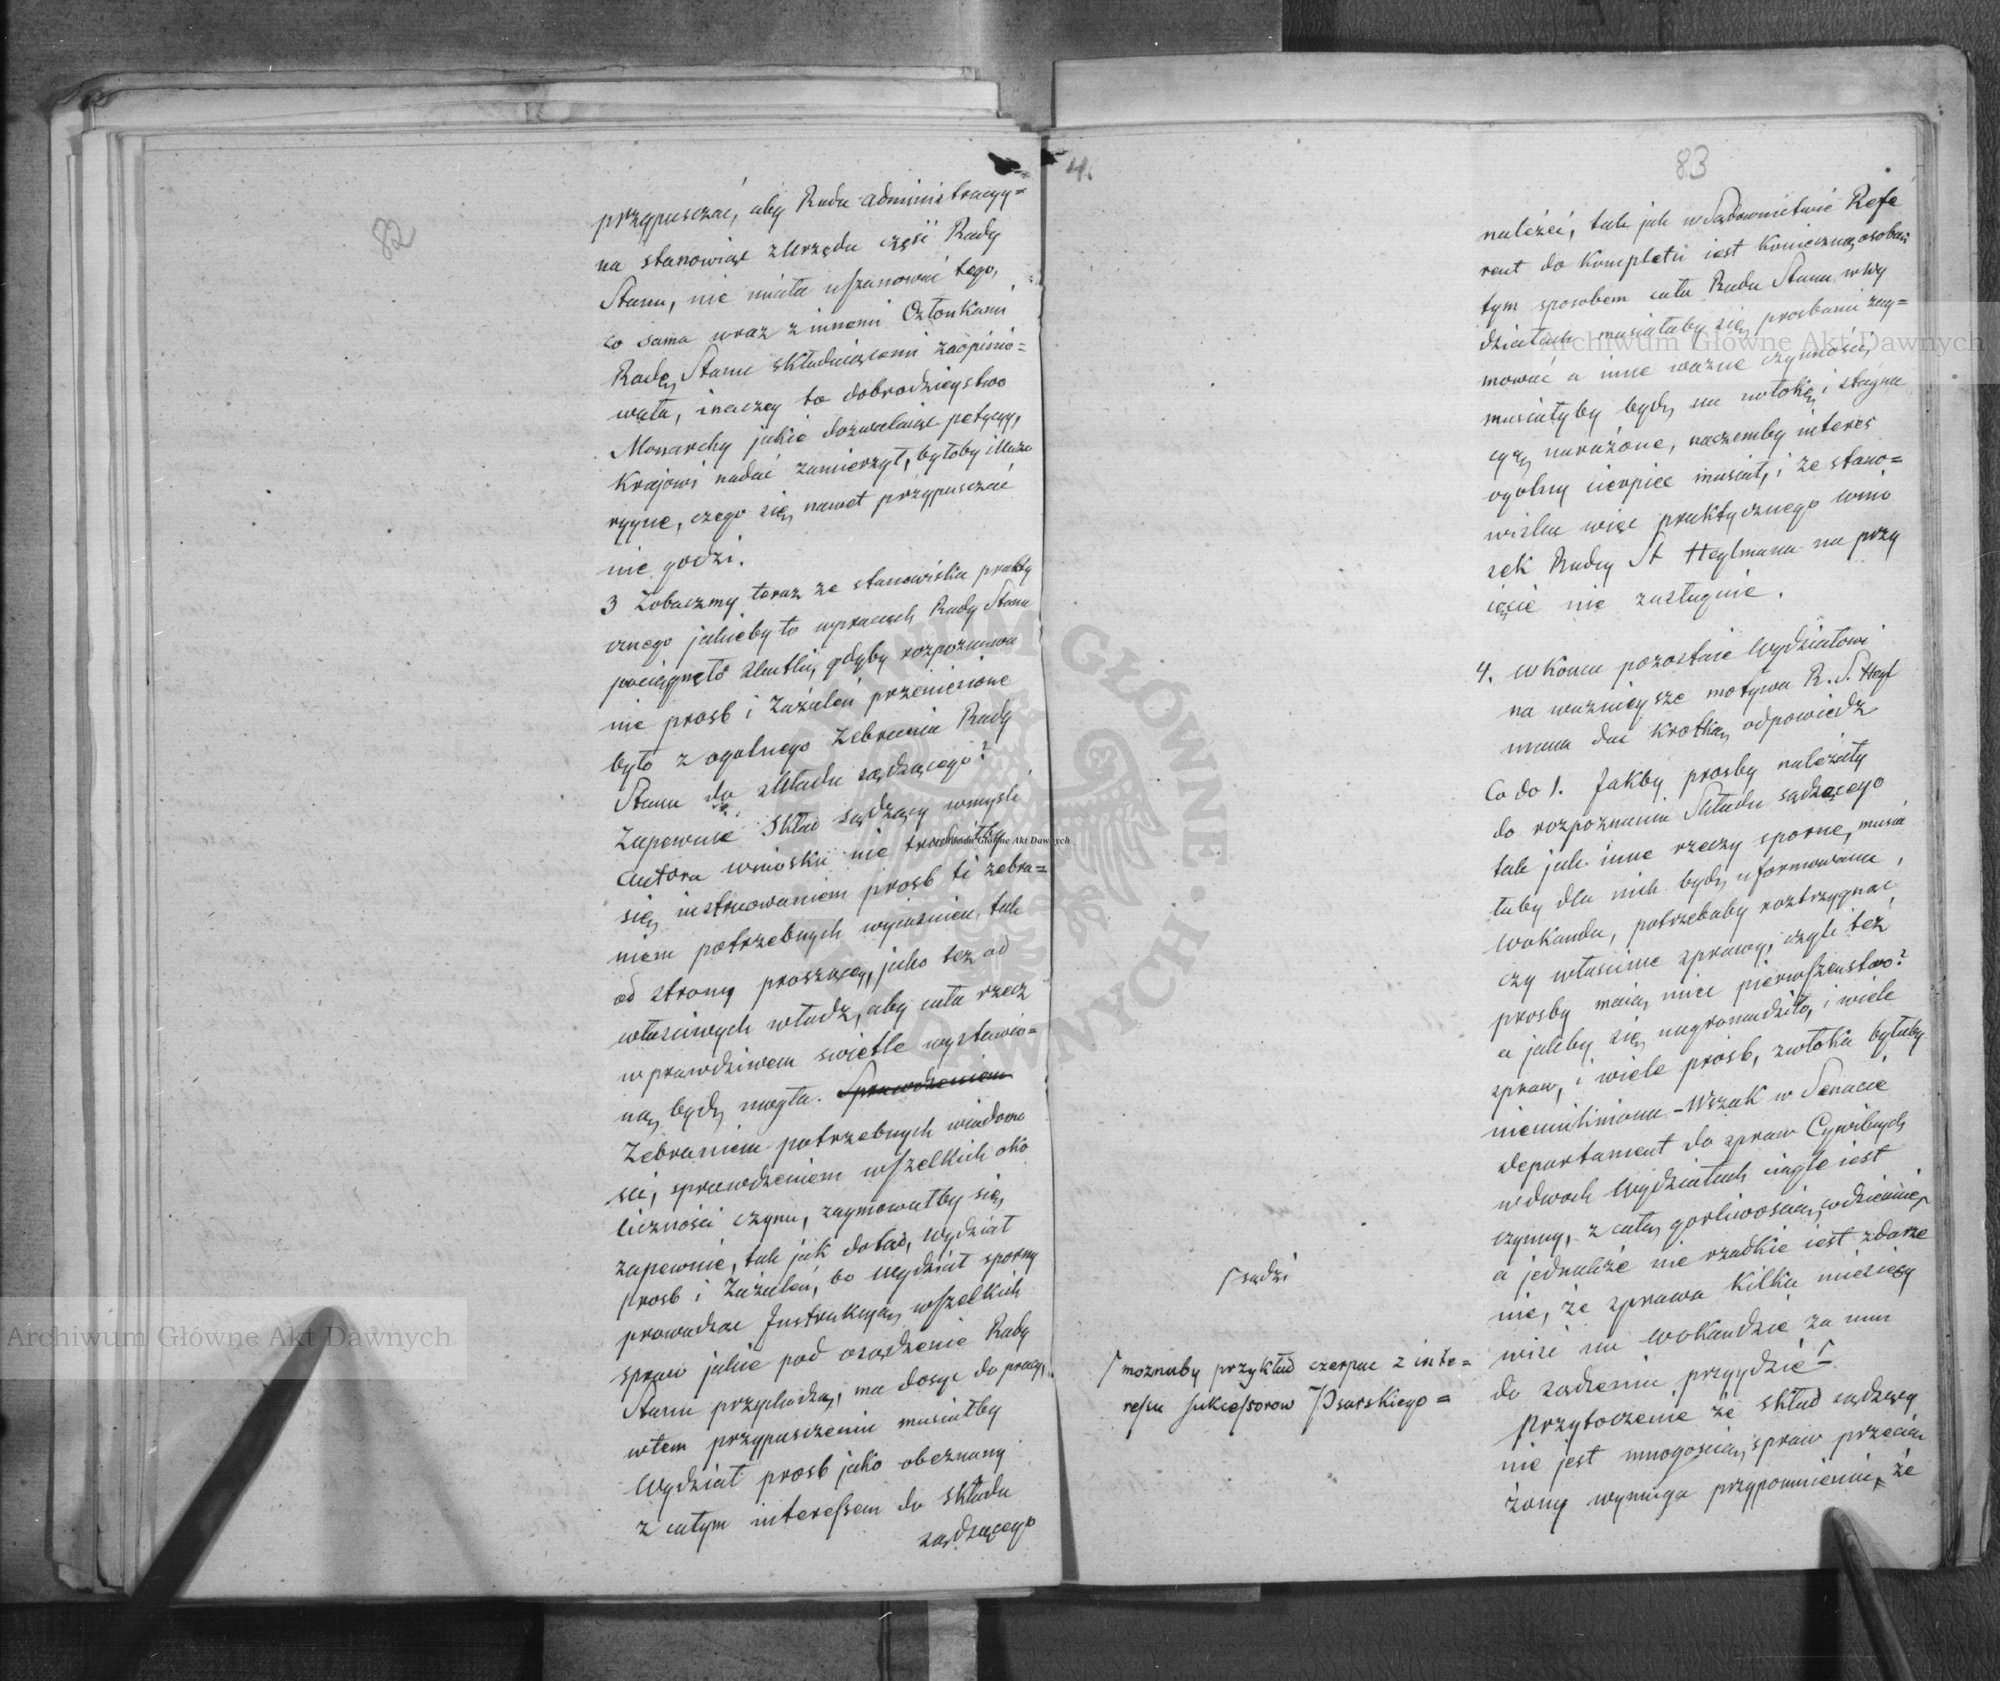 82
przypuszczać, aby Rada administracyy=
na stanowiąc z Urzędu część Rady
Stanu, nie miała uszanować tego,
co sama wraz z innemi Członkami
Radę Stanu składaiącemi zaopinio=
wała, inaczey to dobrodzieystwo
Monarchy jakie dozwalaiąc petycyy,
Krajowi nadać zamierzył, byłoby illuzo
ryyne, czego się nawet przypuszczać
nie godzi.
3 Zobaczmy teraz ze stanowiska prakty
cznego jakieby to w pracach Rady Stanu
pociągnęło skutki, gdyby rozpoznawa
nie prosb i Zażaleń przeniesione
było z ogolnego Zebrania Rady
Stanu do składu sądzącego?
Zapewne Skład sądzący w myśli
autora wniosku nie trudniłby
się instruowaniem prosb ti zebra=
niem potrzebnych wyiaśnień, tak
od strony proszącey, jako też od
właściwych władz, aby cała rzecz
w prawdziwem swietle wystawio=
ną bydź mogła. Sprawdzeniem
Zebraniem potrzebnych wiadomo
sci, sprawdzeniem wszelkich oko
liczności czynu, zaymowałby się
zapewnie, tak jak dotąd, Wydział
prosb i Zażaleń, bo Wydział sporny
prowadząc Instrukcyą wszelkich
spraw jakie pod osądzenie Rady
Stanu przychodzą, ma dosyć do pracy,
w tem przypuszczeniu musiałby
Wydział prosb jako obeznany
z całym interessem do składu
sądzącego
4.
83
należeć, tak jak w Sądownictwie Refe
rent do Kompletu iest konieczną osobą
tym sposobem cała Rada Stanu w Wy
działach musiałaby się prosbami zay=
mować a inne ważne czynności
musiałyby bydź na zwłokę i stagna
cyą narażone, na czemby interes
ogolny cierpieć musiał, i ze stano=
wiska więc praktycznego wnio
sek Radcy St Heylmana na przy
ięcie nie zasługuie.
4. W końcu pozostaie Wydziałowi
na ważnieysze motywa R. S. Heyl
mana dać krotką odpowiedź
Co do 1. Jakby prosby należały
do rozpoznania Składu sądzącego
tak jak inne rzeczy sporne, musia
łaby dla nich bydź uformowana
Wokanda, potrzebaby roztrzygnąć,
czy właściwe sprawy, czyli też
prosby maią mieć pierwszenstwo?
a jakby się nagromadziło i wiele
spraw, i wiele prosb, zwłoka byłaby
nieuchronna – Wszak w Senacie
departament do spraw Cywilnych
w dwoch Wydziałach ciągle iest
czynny, z całą gorliwoscią codziennie
⌈sądzi
a jednakże nie rzadkie iest zdarze
nie, że sprawa kilka miesięcy
wisi na wokandzie za nim
do sądzenia przyydzie⌈ –
⌈możnaby przykład czerpać z inte=
ressu sukcessorow Psarskiego =
Przytoczenie że skład sądzący
nie jest mnogoscią spraw przecią
żony wymaga przypomnienia, że